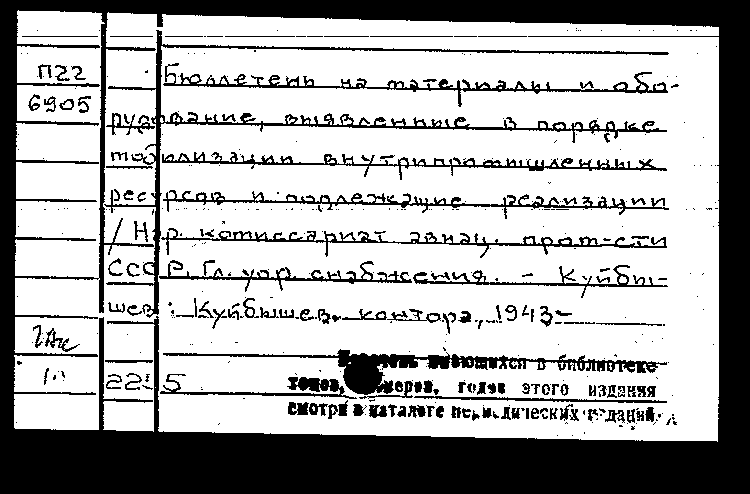 П22
6905
Бюллетень на материалы и обо-
рудование, выявленные в порядке
мобилизации внутрипромышленных
ресурсов и подлежащие реализации
/ Нар. комиссариат авиац. пром-сти
СССР. Гл. упр. снабжения. – Куйбы-
шев : Куйбышев. контора, 1943–
22 5
имеющихся в библиотеке
томов, номеров, годов этого издания
смотри в каталоге периодических изданий